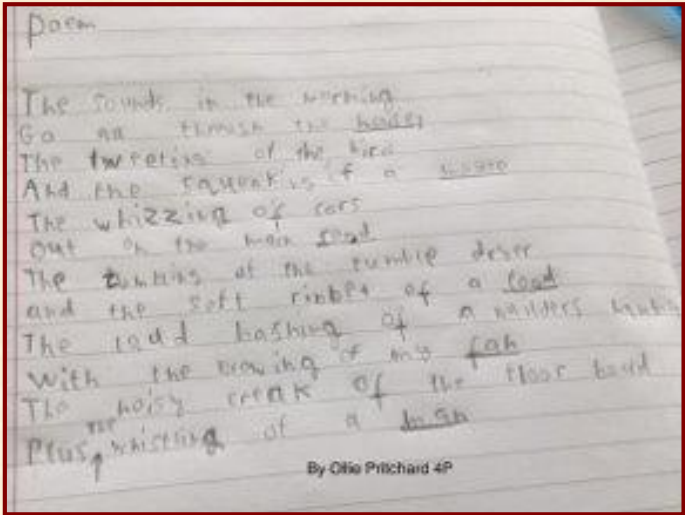 Poem
The sounds in the morning
Go through the
The tweeting of the bird
And the of a
The whizzing of cars
Out on the main road
The of the tumble dryer
and the soft of a toad
The loud bashing of a
With the of my fan
The noisy creak of the floor board
Plus the whistling of a man
By Ollie Pritchard 4P